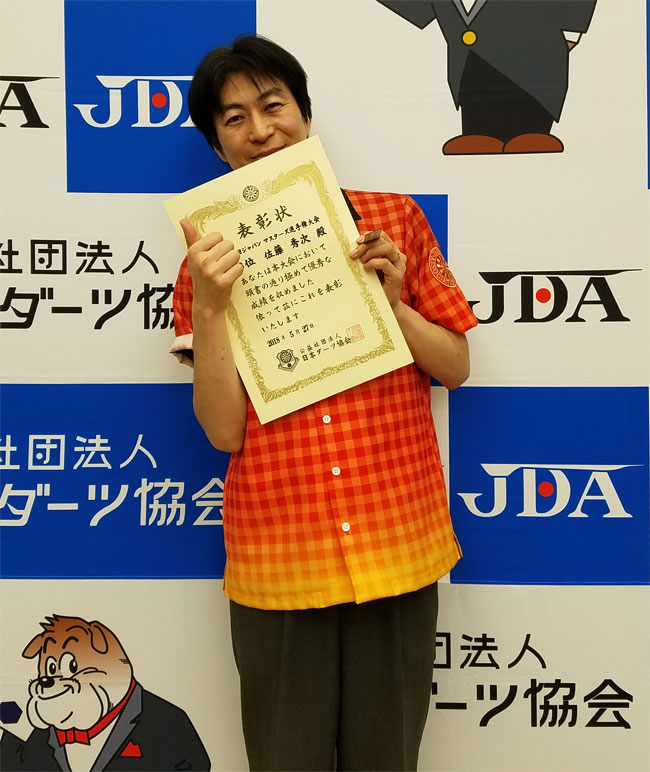 DA
JDA
社団法人
ダーツ協会
表彰状
ジャパン マスターズ選手権大会
位 佐藤 秀次 殿
あなたは本大会において
頭書の通り極めて優秀な
成績を収めました
依って茲にこれを表彰
いたします
2018年5月27日
公益社団法人
日本ダーツ協会
JDA
社団法人
ダーツ協会
JDA
社団法人
ダーツ協会